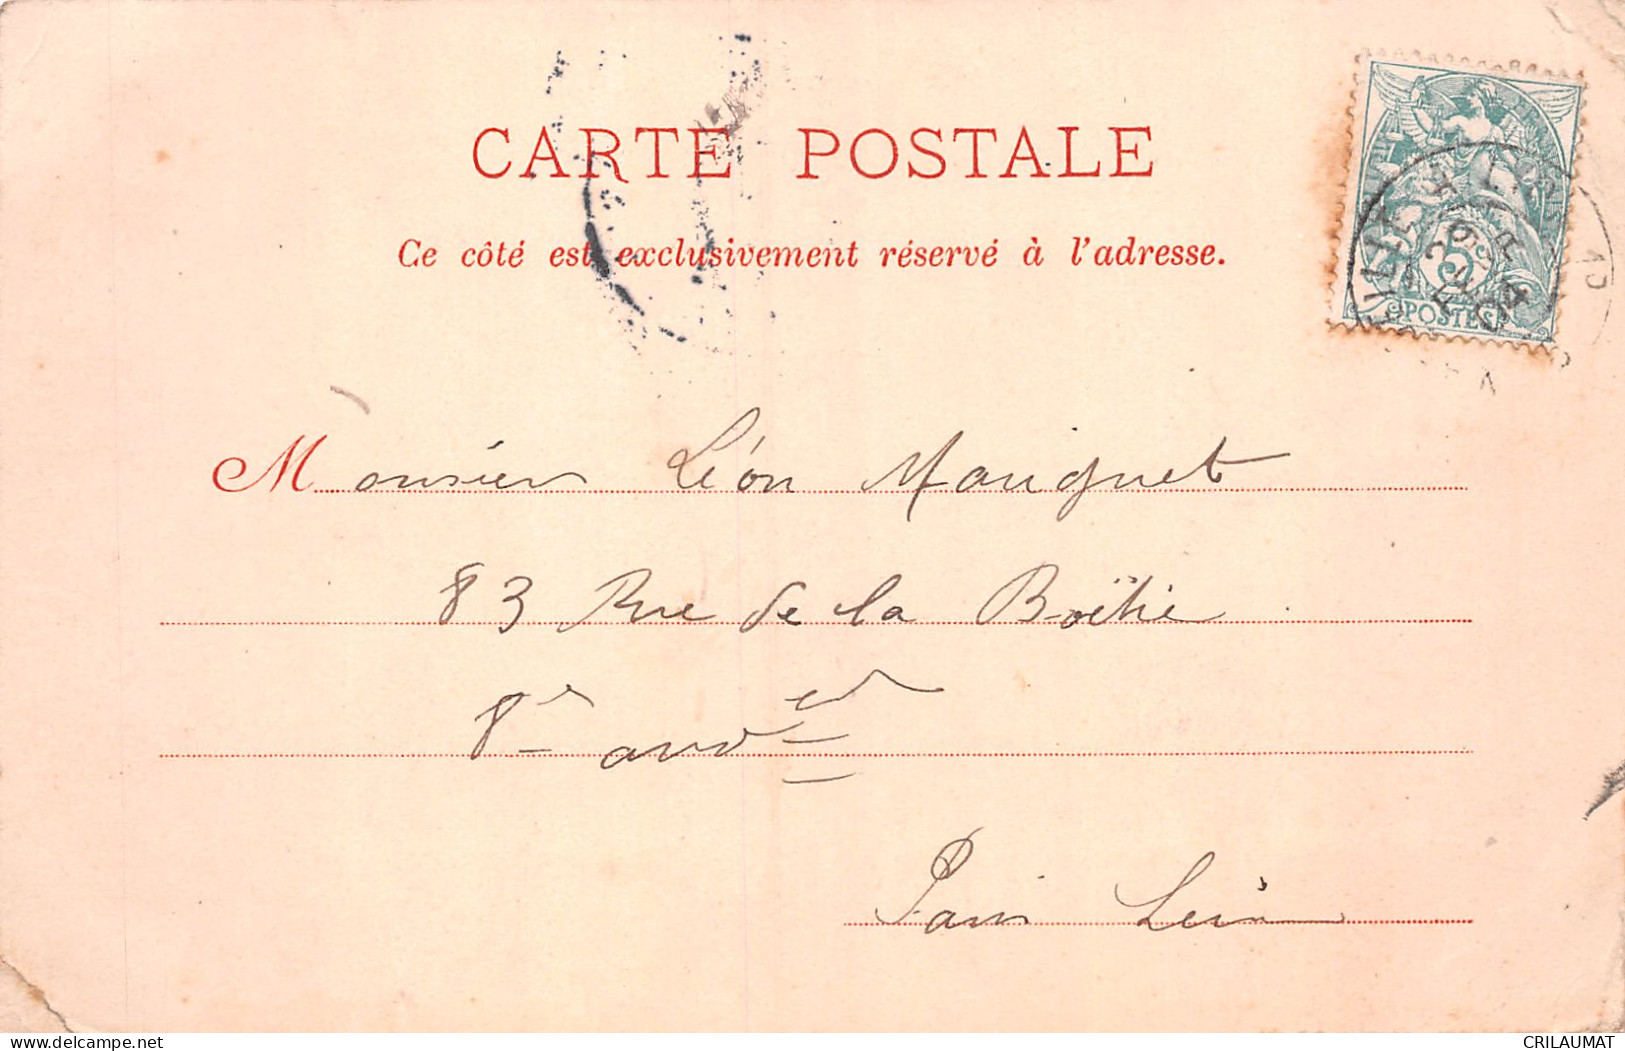 CARTE POSTALE
Ce côté est exclusivement réservé à l'adresse.
5
POSTES
Monsieur Léon Mauguet
83 Rue de la Boëtie
8e arrdt
Paris Seine
delcampe.net
CRILAUMAT